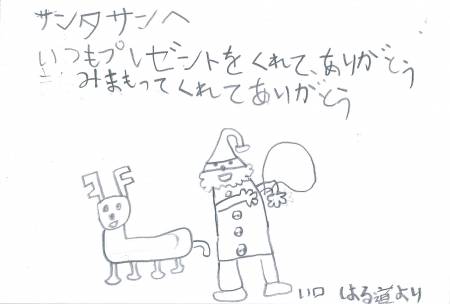 サンタサンへ
いつもプレゼントをくれて、ありがとう
みまもってくれてありがとう
はる道より